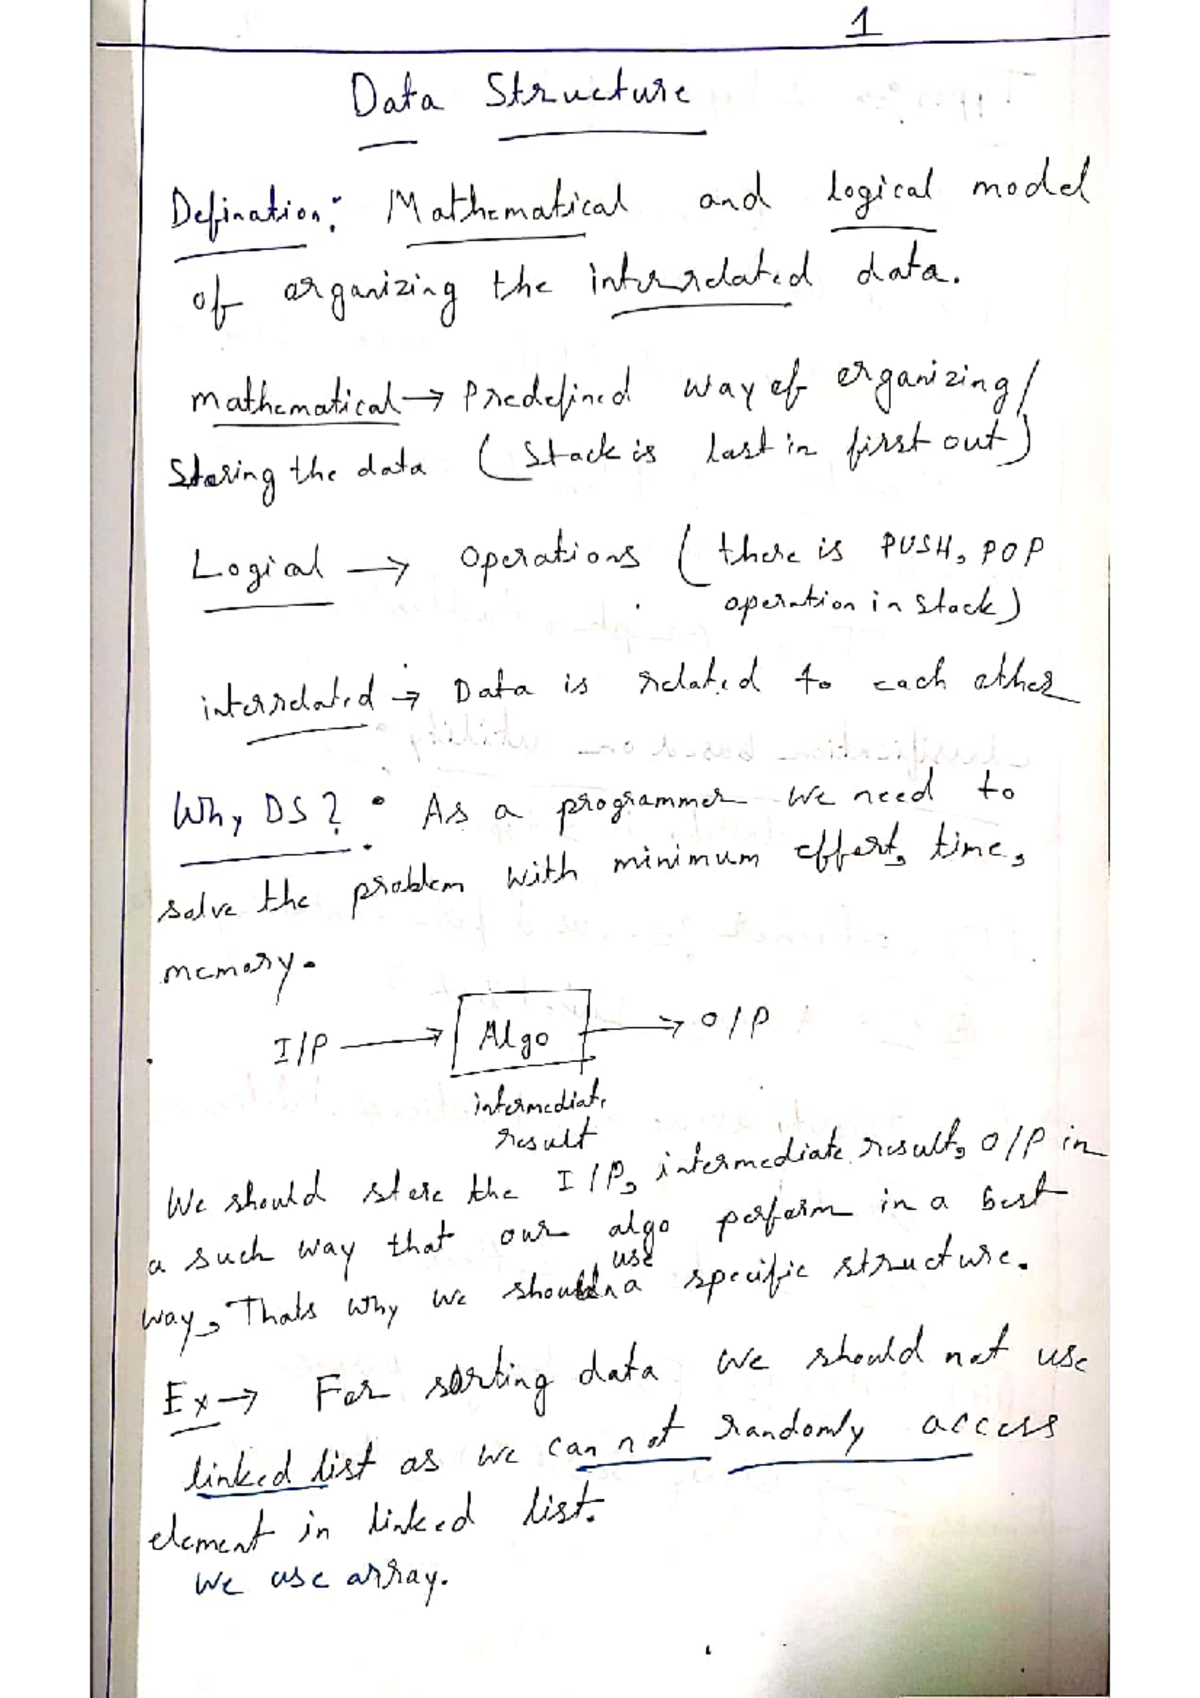 1
Data Structure
Defination: Mathematical and logical model
of organizing the interrelated data.
mathematical → Predefined way of organizing/
Storing the data (Stack is last in first out)
Logical → Operations (there is PUSH, POP
operation in stack)
interrelated → Data is related to each other
Why DS? : As a programmer we need to
solve the problem with minimum effort, time,
memory.
I/P → Algo → O/P
intermediate
result
We should store the I/P, intermediate result, O/P in
a such way that our algo perform in a best
way, Thats why we should use a specific structure.
Ex → For sorting data we should not use
linked list as we can not randomly access
element in linked list.
we use array.